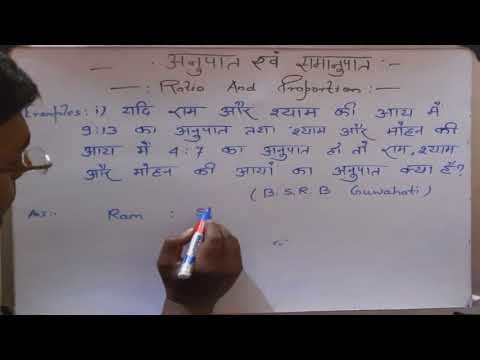 अनुपात एवं समानुपात :-
-: Ratio And Proportion :-
Examples: i) यदि राम और श्याम की आय में
9:13 का अनुपात तथा श्याम और मोहन की
आय में 4:7 का अनुपात हो तो राम, श्याम
और मोहन की आयों का अनुपात क्या है?
(B.S.R.B Guwahati)
Ans:- Ram : S